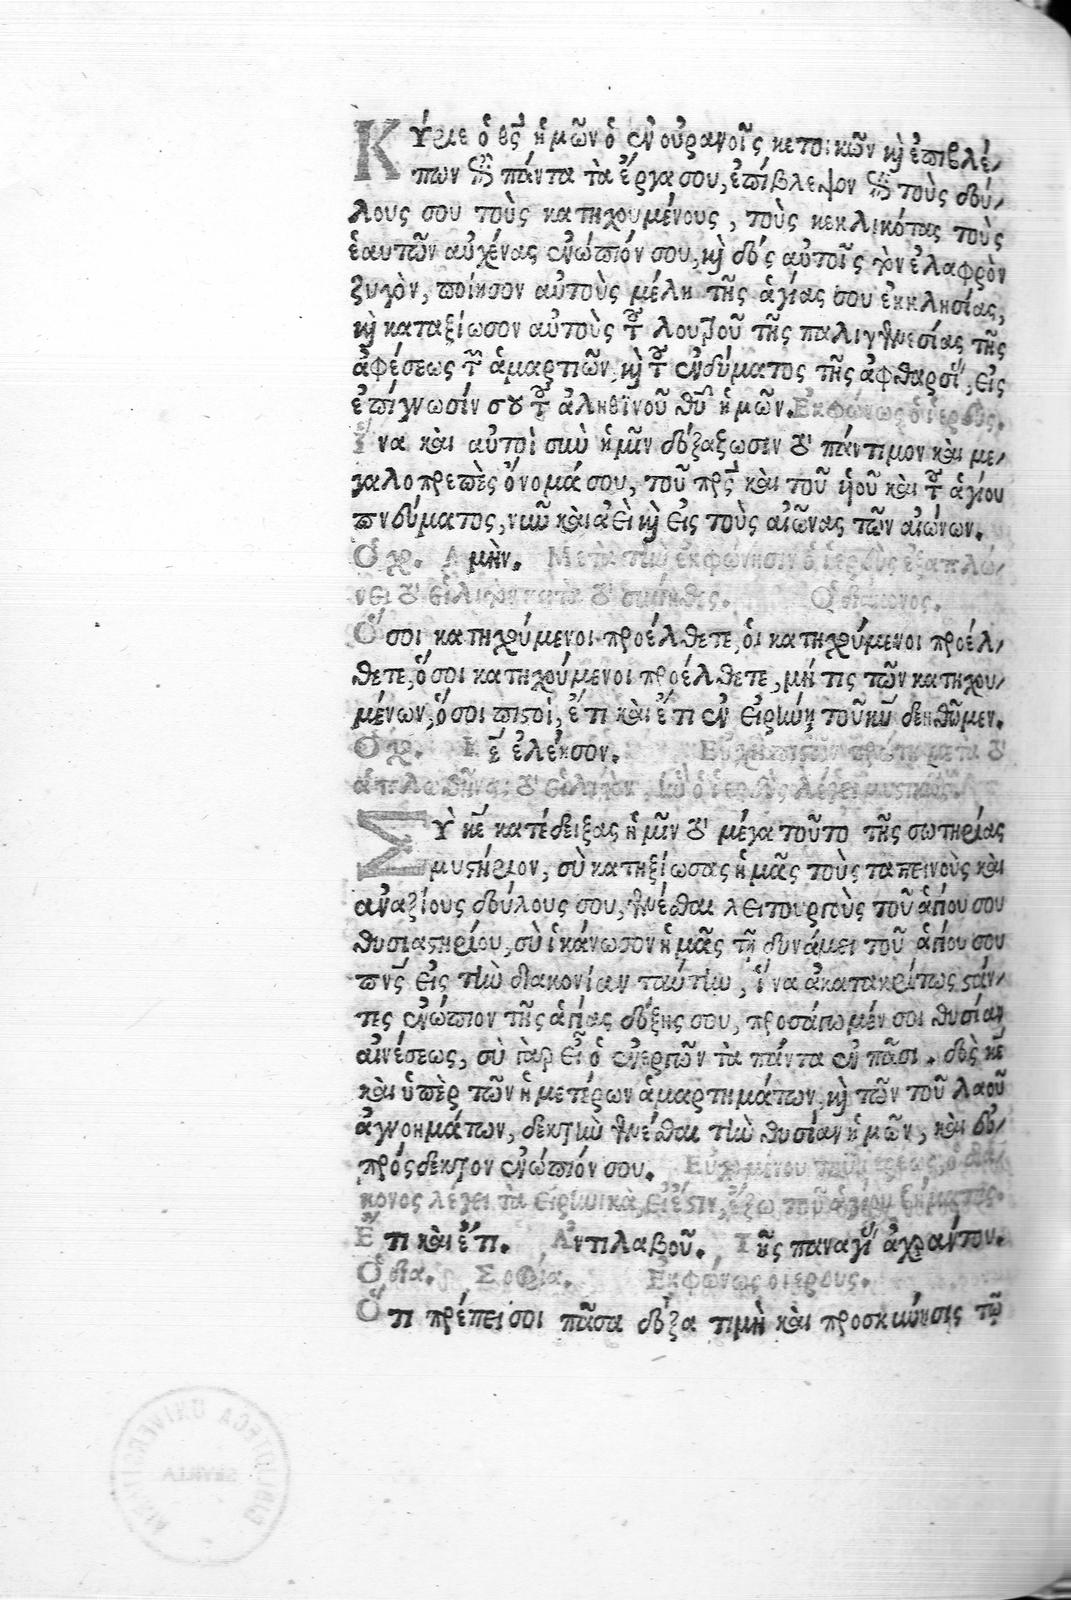 Κύριε ὁ θς̅ ἡμῶν ὁ ἐν οὐρανοῖς κατοικῶν κ̀ ἐπιβλέ-
πων ἐπὶ πάντα τὰ ἔργα σου, ἐπίβλεψον ἐπὶ τοὺς δού-
λους σου τοὺς κατηχουμένους, τοὺς κεκλικότας τοὺς
ἑαυτῶν αὐχένας ἐνώπιόν σου, κ̀ δὸς αὐτοῖς τὸν ἐλαφρὸν
ζυγὸν, ποίησον αὐτοὺς μέλη τῆς ἁγίας σου ἐκκλησίας,
κ̀ καταξίωσον αὐτοὺς τοῦ λουτροῦ τῆς παλιγγενεσίας τῆς
ἀφέσεως τῶν ἁμαρτιῶν, κ̀ τοῦ ἐνδύματος τῆς ἀφθαρσί, εἰς
ἐπίγνωσίν σου τοῦ ἀληθινοῦ θῦ ἡμῶν. Ἐκφώνως ὁ ἱερεύς.
Ἵνα καὶ αὐτοὶ σὺν ἡμῖν δοξάζωσιν τὸ πάντιμον καὶ με-
γαλοπρεπὲς ὄνομά σου, τοῦ πρς̅ καὶ τοῦ ὑιοῦ καὶ τοῦ ἁγίου
πνεύματος, νῦν καὶ ἀεὶ κ̀ εἰς τοὺς αἰῶνας τῶν αἰώνων.
Ὁ χο. Ἀμὴν. Μετὰ τὴν ἐκφώνησιν ὁ ἱερεὺς ἐξαπλώ-
νει τὸ εἰλητὸν κατὰ τὸ σύνηθες. Ὁ διάκονος.
Ὅσοι κατηχούμενοι προέλθετε, ὁι κατηχούμενοι προέλ-
θετε, ὅσοι κατηχούμενοι προέλθετε, μή τις τῶν κατηχου-
μένων, ὅσοι πιστοὶ, ἔτι καὶ ἔτι ἐν εἰρήνῃ τοῦ κῦ δεηθῶμεν.
Ὁ χ. Κε̅ ἐλέησον. Εὐχὴ πιστῶν πρώτη μετὰ τὸ
ἁπλωθῆναι τὸ εἰλητὸν, ἣν ὁ ἱερεὺς λέγει μυστικῶς.
Σὺ κε̅ κατέδειξας ἡμῖν τὸ μέγα τοῦτο τῆς σωτηρίας
μυστήριον, σὺ κατηξίωσας ἡμᾶς τοὺς ταπεινοὺς καὶ
ἀναξίους δούλους σου, γενέσθαι λειτουργοὺς τοῦ ἁγίου σου
θυσιαστηρίου, σὺ ἱκάνωσον ἡμᾶς τῇ δυνάμει τοῦ ἁγίου σου
πνς̅ εἰς τὴν διακονίαν ταύτην, ἵνα ἀκατακρίτως στάν-
τες ἐνώπιον τῆς ἁγίας δόξης σου, προσάγωμέν σοι θυσίαν
αἰνέσεως, σὺ γὰρ εἶ ὁ ἐνεργῶν τὰ πάντα ἐν πᾶσι. δὸς κε̅
καὶ ὑπὲρ τῶν ἡμετέρων ἁμαρτημάτων, κ̀ τῶν τοῦ λαοῦ
ἀγνοημάτων, δεκτὴν γενέσθαι τὴν θυσίαν ἡμῶν, καὶ εὐ-
πρόσδεκτον ἐνώπιόν σου. Εὐχομένου τοῦ ἱερέως, ὁ διά-
κονος λέγει τὰ εἰρηνικὰ, εἰ ἔστιν ἔξω τοῦ ἁγίου βήματος.
Ἔτι καὶ ἔτι. Ἀντιλαβοῦ. Τῆς παναγί ἀχράντου.
Ὁ δια. Σοφία. Ἐκφώνως ὁ ἱερεύς.
Ὅτι πρέπει σοι πᾶσα δόξα τιμὴ καὶ προσκύνησις τῷ